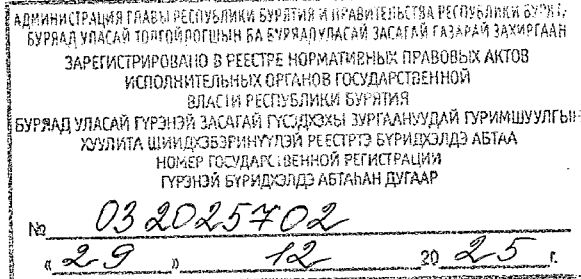 АДМИНИСТРАЦИЯ ГЛАВЫ РЕСПУБЛИКИ БУРЯТИЯ И ПРАВИТЕЛЬСТВА РЕСПУБЛИКИ
БУРЯАД УЛАСАЙ ТОЛГОЙЛОГШЫН БА БУРЯАД УЛАСАЙ ЗАСАГАЙ ГАЗАРАЙ ЗАХИРГААН
ЗАРЕГИСТРИРОВАНО В РЕЕСТРЕ НОРМАТИВНЫХ ПРАВОВЫХ АКТОВ
ИСПОЛНИТЕЛЬНЫХ ОРГАНОВ ГОСУДАРСТВЕННОЙ
ВЛАСТИ РЕСПУБЛИКИ БУРЯТИЯ
БУРЯАД УЛАСАЙ ГҮРЭНЭЙ ЗАСАГАЙ ГҮЙСЭДХЭХЫ ЗУРГААНУУДАЙ ГУРИМШУУЛГЫН
ХУУЛИТА ШИИДХЭБЭРИНҮҮДЭЙ РЕЕСТРТЭ БҮРИДХЭЛДЭ АБТАА
НОМЕР ГОСУДАРСТВЕННОЙ РЕГИСТРАЦИИ
ГҮРЭНЭЙ БҮРИДХЭЛДЭ АБТАҺАН ДУГААР
№ 032025702
« 29 » 12 20 25 г.